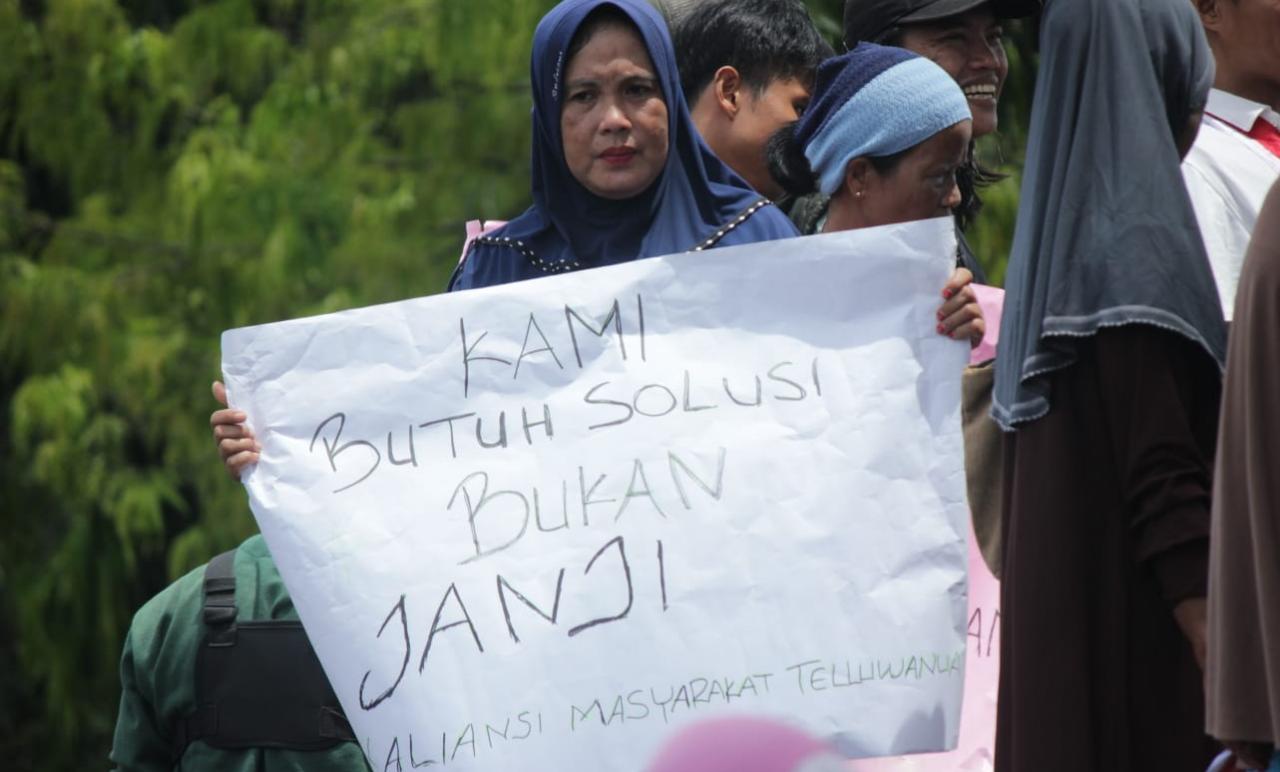 KAMI
BUTUH SOLUSI
BUKAN
JANJI
ALIANSI MASYARAKAT TELLUWANUA